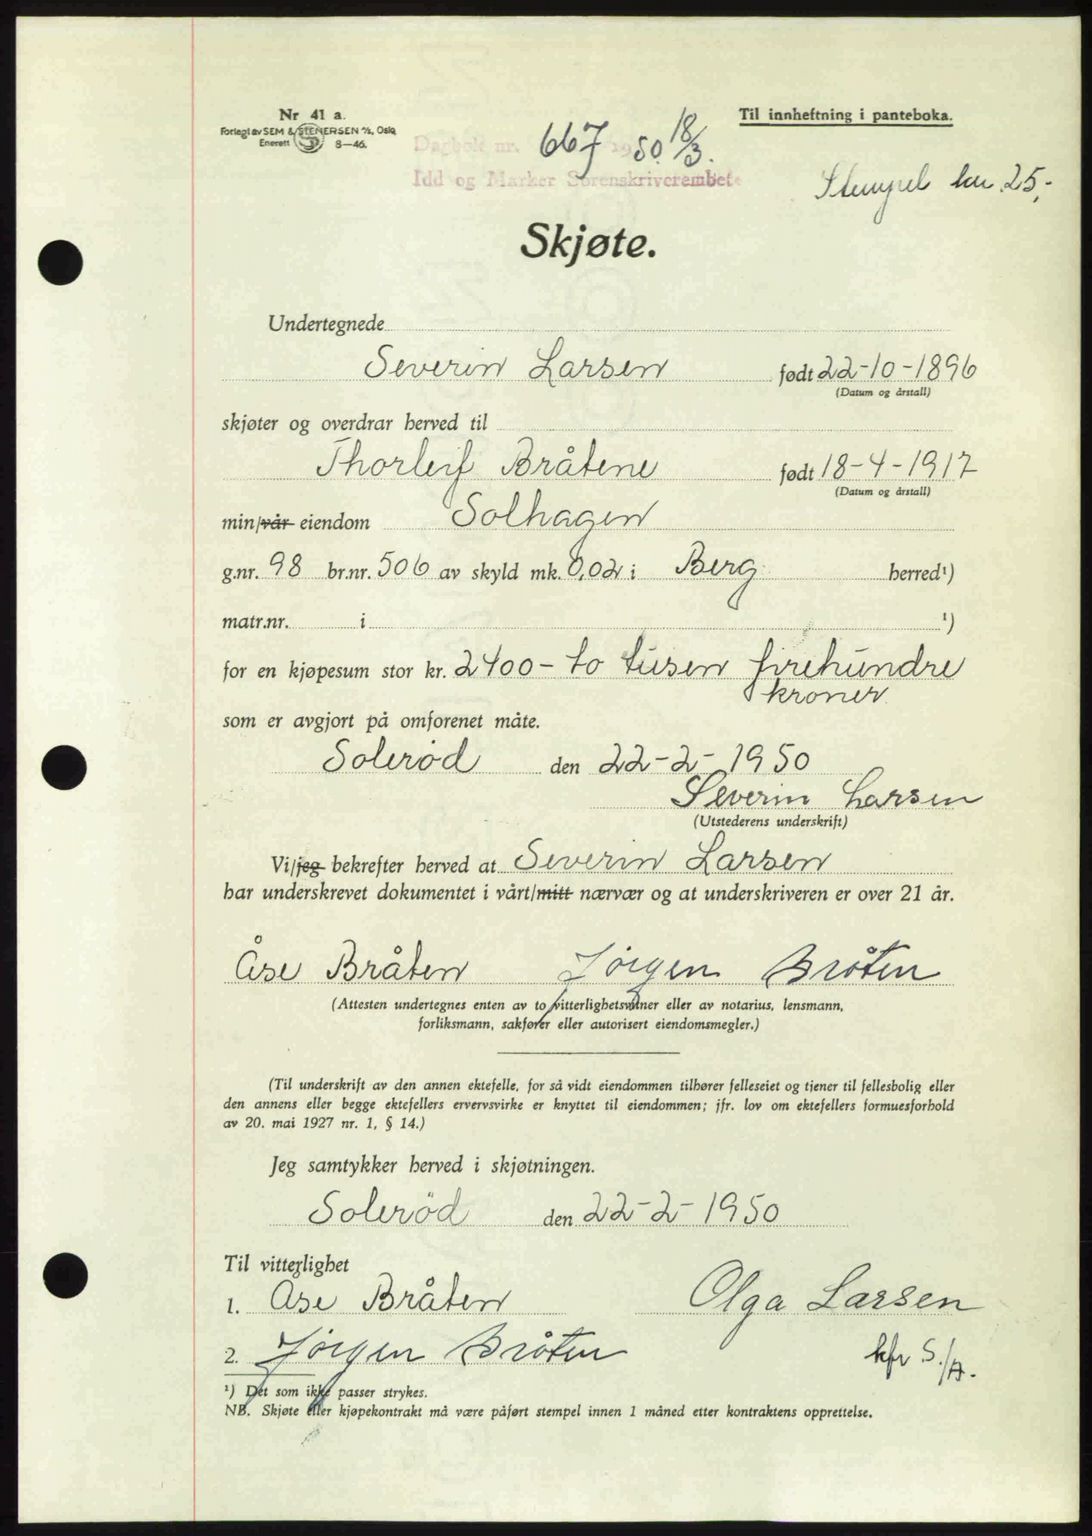 Nr 41 a.
Forlagt av SEM & STENERSEN A/S, Oslo
Enerett 8—46.
Til innheftning i panteboka.
Dagbok nr. 667 1950 18/3.
Idd og Marker Sorenskriverembete
Stempel kr. 25,-
Skjøte.
Undertegnede
Severin Larsen født 22-10-1896
(Datum og årstall)
skjøter og overdrar herved til
Thorleif Bråtene født 18-4-1917
(Datum og årstall)
min/vår eiendom Solhagen
g.nr. 98 br.nr. 506 av skyld mk. 0,02 i Berg herred¹)
matr.nr. i ¹)
for en kjøpesum stor kr. 2400- to tusen firehundre
kroner
som er avgjort på omforenet måte.
Solerød den 22-2-1950
Severin Larsen
(Utstederens underskrift)
Vi/jeg bekrefter herved at Severin Larsen
har underskrevet dokumentet i vårt/mitt nærvær og at underskriveren er over 21 år.
Åse Bråten Jørgen Bråten
(Attesten undertegnes enten av to vitterlighetsvitner eller av notarius, lensmann,
forliksmann, sakfører eller autorisert eiendomsmegler.)
(Til underskrift av den annen ektefelle, for så vidt eiendommen tilhører felleseiet og tjener til fellesbolig eller
den annens eller begge ektefellers ervervsvirke er knyttet til eiendommen; jfr. lov om ektefellers formuesforhold
av 20. mai 1927 nr. 1, § 14.)
Jeg samtykker herved i skjøtningen.
Solerød den 22-2-1950
Til vitterlighet
1. Åse Bråten Olga Larsen
2. Jørgen Bråten kfr S./A.
¹) Det som ikke passer strykes.
NB. Skjøte eller kjøpekontrakt må være påført stempel innen 1 måned etter kontraktens opprettelse.